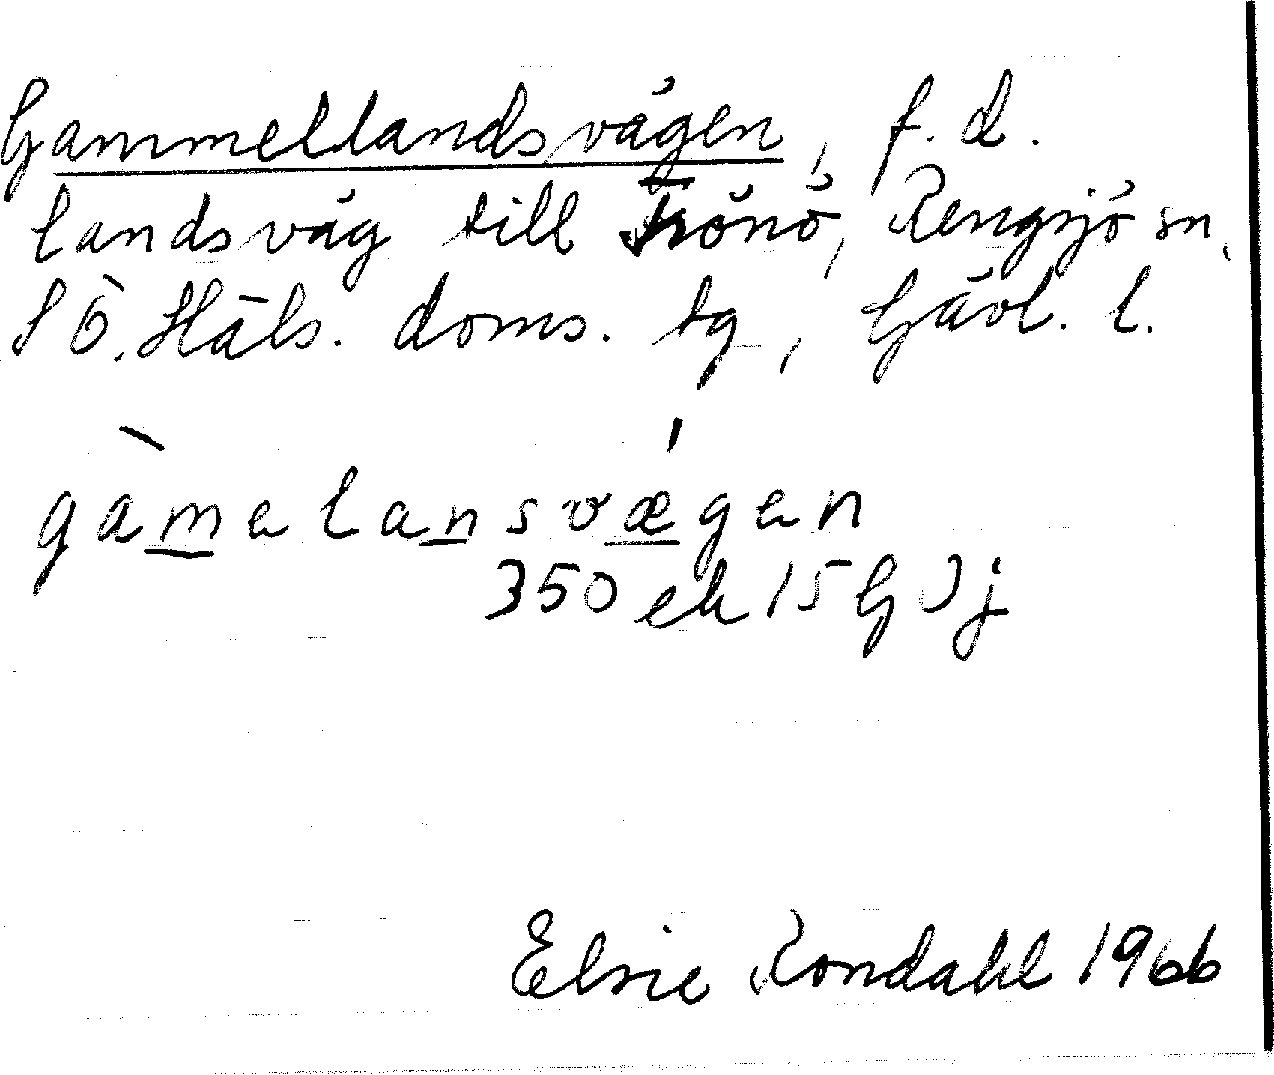 Gammellandsvägen, f.d.
landsväg till Trönö, Rengsjö sn,
SÖ. Häls. doms. tg, Gävl. l.
gàmelansvǽgen
350 ek 15G 0j
Elsie Rondahl 1966